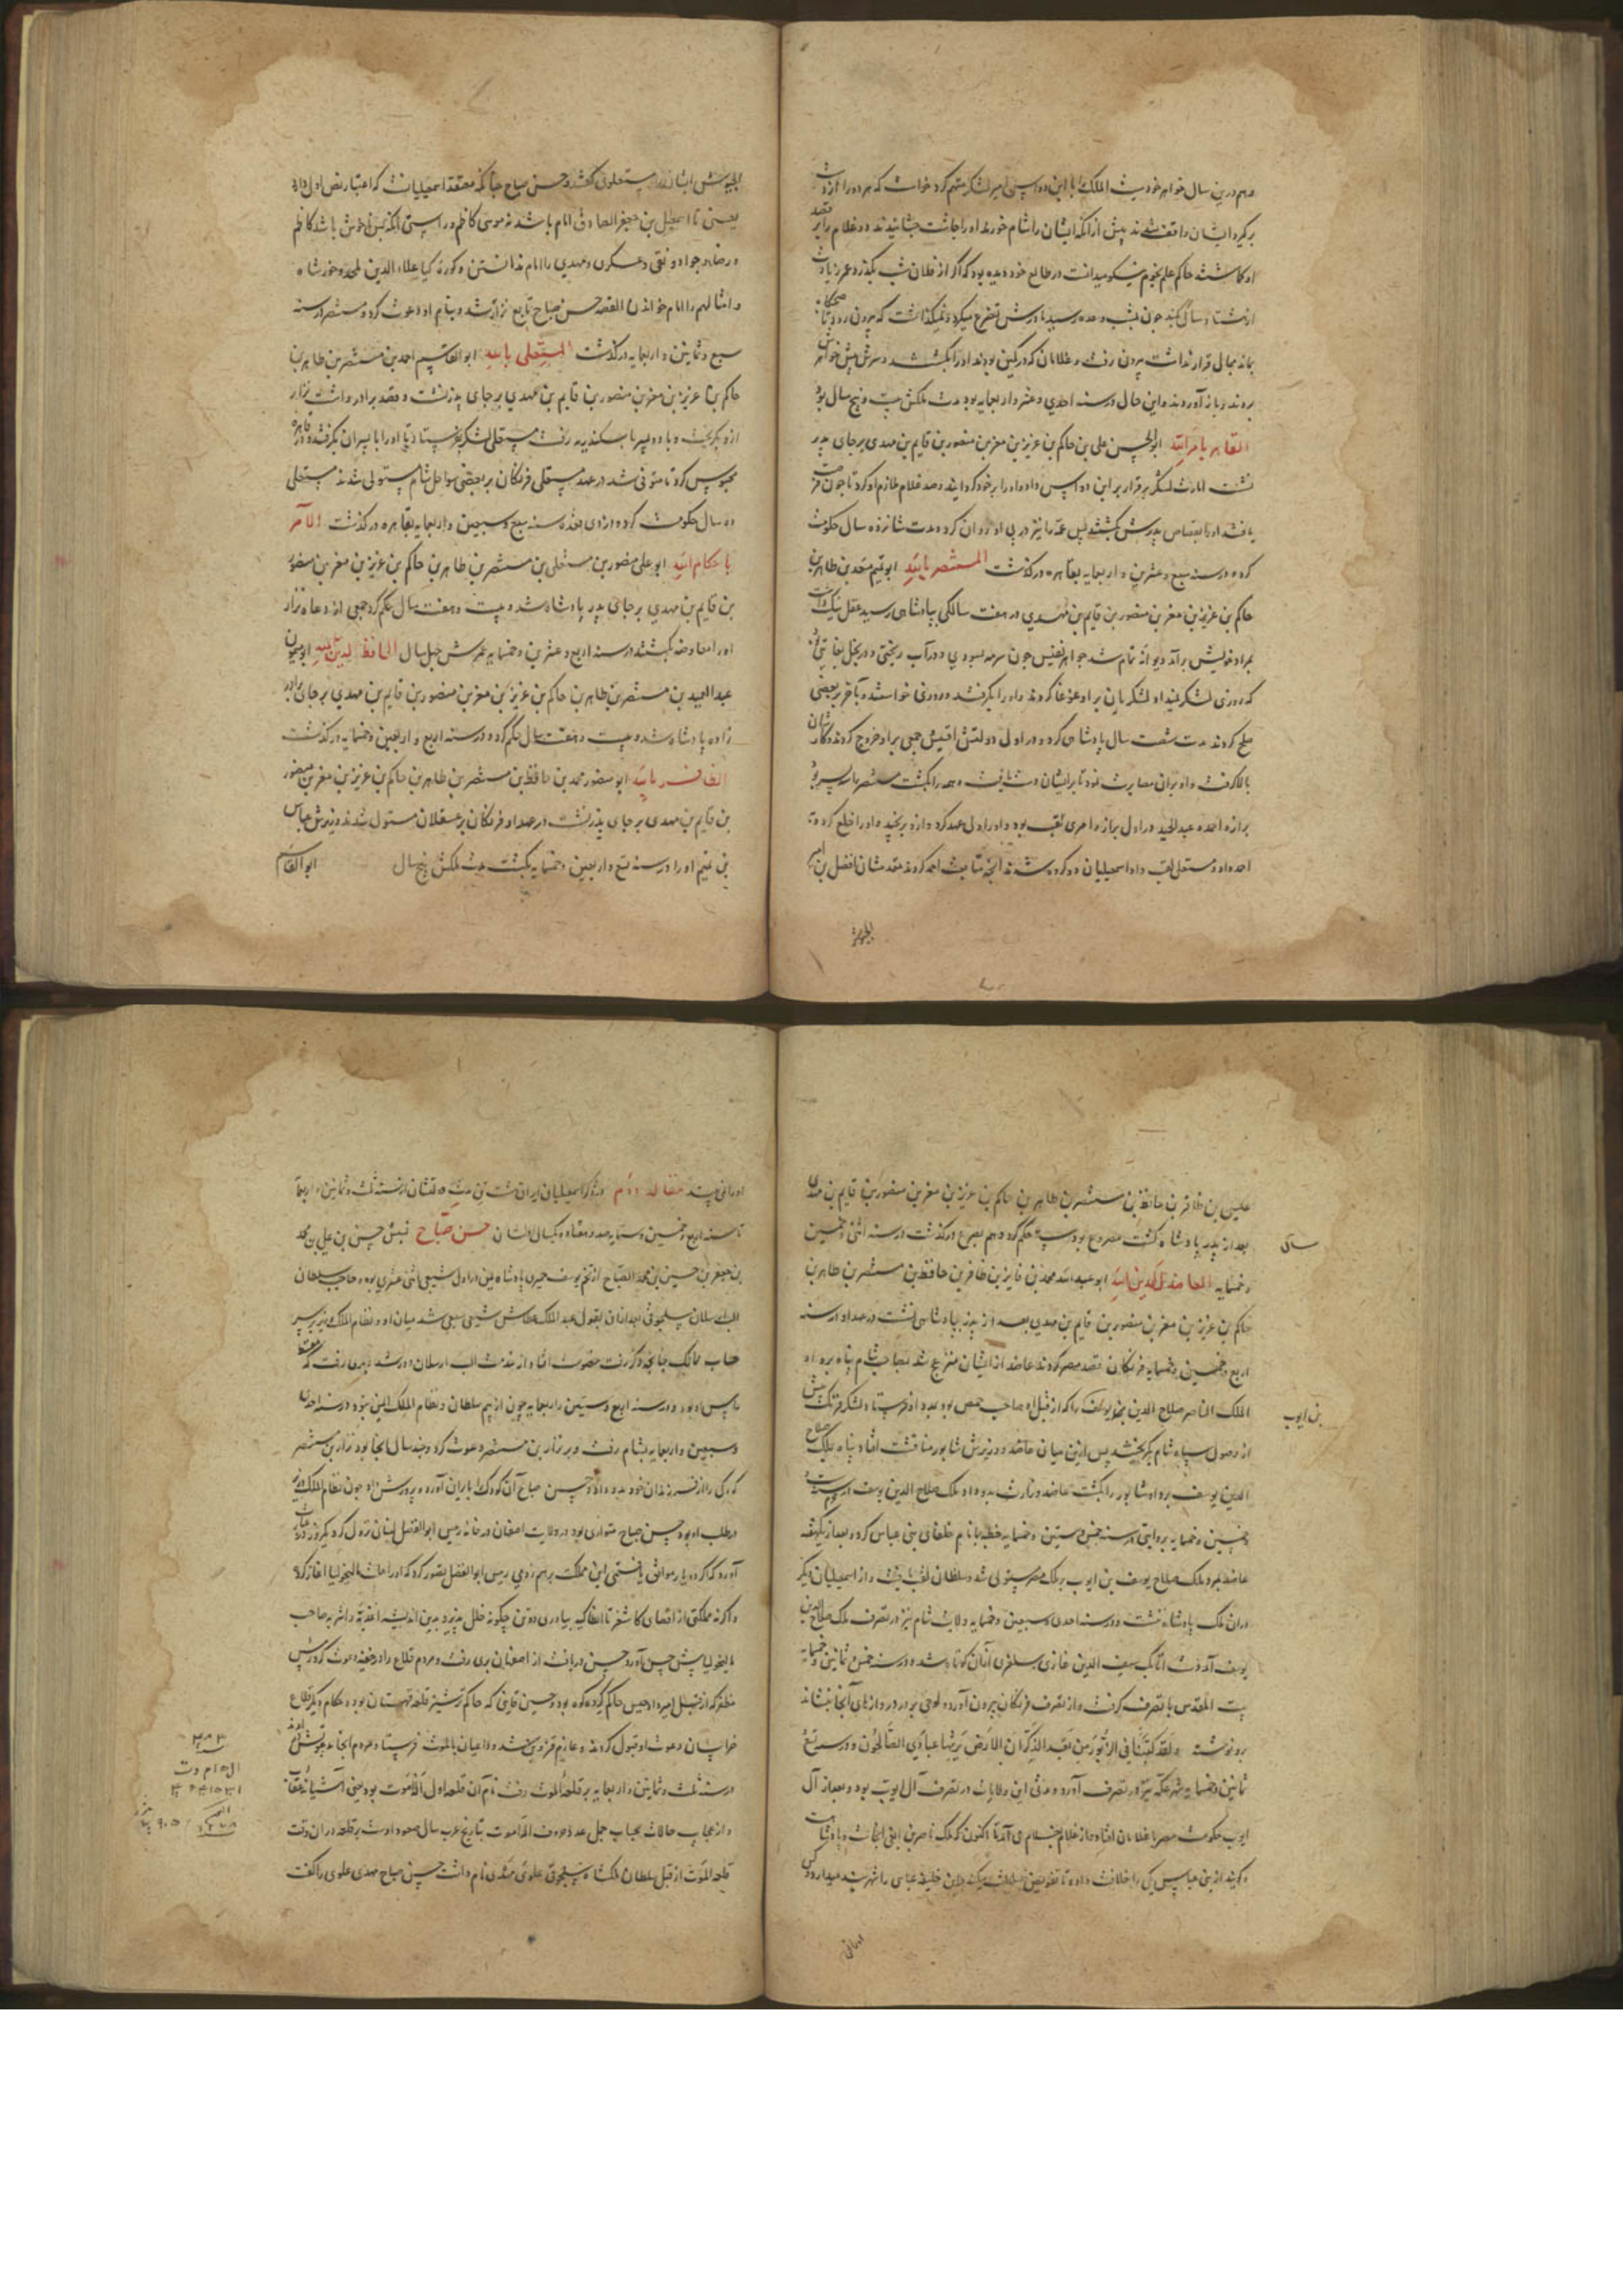 وهم درین سال خواهر خود ست الملک را با ابن دواس امیر لشکر متهم کرد خواست که هر دو را از دست
برگیرد ایشان واقف شدند پیش از آنکه ایشان را شام خورد او را چاشت چشانیدند دو غلام را بر قصد
او کاشتند حاکم علم نجوم نیکو میدانست در طالع خود دیده بود که اگر از فلان شب بگذرد عمرش زیادت
از هشتاد سال بکشد چون شب وعده رسید مادرش تضرع میکرد و نمیگذاشت که بیرون رود تا صبحگاه
بماند مجال قرار نداشت بیرون رفت و غلامان که در کمین بودند او را بکشتند و سرش پیش خواهرش
بردند و باز آوردند و این حال در سنه احدی و عشر و اربعمایه بود مدت ملکش بیست و پنج سال بود
القاهر بامر الله ابوالحسن علی بن حاکم بن عزیز بن معز بن منصور بن قایم بن مهدی بر جای پدر
نشست امارت لشکر بر قرار بر ابن دواس داد و او را بر خود کرد اند و صد غلام ملازم او کرد تا چون فرصت
یافتند او را بقصاص پدرش بکشتند پس عمه را نیز در پی او روان کرد مدت شانزده سال حکومت
کرد و در سنه سبع و عشرین و اربعمایه بقاهره در گذشت المستنصر بالله ابوتمیم معد بن طاهر بن
حاکم بن عزیز بن معز بن منصور بن قایم بن مهدی در هفت سالگی بپادشاهی رسید عقل نیک داشت
بمراد خویش برآمد دیوانه تمام شد جواهر نفیس چون سرمه بسودی و در آب ریختی و در بخل بغایتی بود
که روزی لشکر نمیداد لشکریان برو غوغا کردند و او را بگرفتند و روزی خواستند و بآخر بر بعضی
صلح کردند مدت شصت سال پادشاهی کرد و در اول دولتش اقیس جمعی برو خروج کردند و کارشان
بالا گرفت و او برانی مصابرت نمود تا بر ایشان دست یافت و همه را بکشت مستنصر را سه پسر بود
نزار و احمد و عبدالحمید در اول نزار را مهری لقب بود و او را ولی عهد کرد و ازو برنجید و او را خلع کرد و
احمد را و مستعلی لقب داد اسمعیلیان دو گروه شدند آنچه متابعت احمد کردند مقدمشان افضل بن امیر
الجیوش
الجیوش ایشانرا مستعلوی گفتند و حسن صباح چنانکه معتقد اسمعیلیانست که اعتبار نص اول دارد
یعنی تا اسمعیل بن جعفر الصادق امام باشد نه موسی کاظم و راستی آنکه نص خوش باشد کاظم
و رضا و جواد و نقی و عسکری و مهدی را امام ندانستن و کوره کیا علاء الدین محمد و خورشاه
و امثالهم را امام خواندن القصه حسن صباح تابع نزار شد و بنام او دعوت کرد و مستنصر در سنه
سبع و ثمانین و اربعمایه در گذشت المستعلی بالله ابوالقاسم احمد بن مستنصر بن طاهر بن
حاکم بن عزیز بن معز بن منصور بن قایم بن مهدی بر جای پدر نشست و قصد برادر داشت نزار
ازو بگریخت و با دو پسر باسکندریه رفت مستعلی لشکر فرستاد تا او را با پسران بگرفتند و در قاهره
محبوس کرد تا متوفی شد در عهد مستعلی فرنگان بر بعضی سواحل شام مستولی شدند مستعلی
ده سال حکومت کرد و در ذی القعده سنه سبع و تسعین و اربعمایه بقاهره در گذشت الامر
باحکام الله ابوعلی منصور بن مستعلی بن مستنصر بن طاهر بن حاکم بن عزیز بن معز بن منصور
بن قایم بن مهدی بر جای پدر پادشاه شد و بیست و هفت سال حکم کرد جمعی از دعاة نزار
او را معاوضه بکشتند در سنه اربع و عشرین و خمسمایه عمرش چهل سال الحافظ لدین الله ابومیمون
عبدالمجید بن مستنصر بن طاهر بن حاکم بن عزیز بن معز بن منصور بن قایم بن مهدی بر جای برادر
زاده پادشاه شد و بیست و هفت سال حکم کرد و در سنه اربع و اربعین و خمسمایه در گذشت
الظافر بالله ابومنصور محمد بن حافظ بن مستنصر بن طاهر بن حاکم بن عزیز بن معز بن منصور
بن قایم بن مهدی بر جای پدر نشست در عهد او فرنگان بر عسقلان مستولی شدند وزیرش عباس
بن تمیم او را در سنه تسع و اربعین و خمسمایه بکشت مدت ملکش پنج سال ابوالقاسم
عیسی بن ظافر بن حافظ بن مستنصر بن طاهر بن حاکم بن عزیز بن معز بن منصور بن قایم بن مهدی
بعد از پدر پادشاه گشت مصروع بود سه حکم کرد و هم بصرع در گذشت در سنه اثنی و خمسین
سال
و خمسمایه العاضد لدین الله ابوعبدالله محمد بن فایز بن ظافر بن حافظ بن مستنصر بن طاهر بن
حاکم بن عزیز بن معز بن منصور بن قایم بن مهدی بعد از پدر بپادشاهی نشست در عهد او در سنه
اربع و خمسین و خمسمایه فرنگان قصد مصر کردند عاضد از ایشان منزعج شد بصاحب شام پناه برد او
الملک الناصر صلاح الدین یوسف را که از قبل او صاحب حمص بود بمدد او فرستاد لشکر فرنگ پیش
بن ایوب
از وصول سپاه شام بگریختند پس ازین میان عاضد و وزیرش شاپور منافست افتاد پناه بملک صلاح
الدین یوسف برد او شاپور را بکشت عاضد وزارت بدو داد ملک صلاح الدین یوسف در سنه
خمسین و خمسمایه بروایتی در سنه خمس و ستین و خمسمایه خطبه با نام خلفای بنی عباس کرد و بعد از یک هفته
عاضد بمرد و ملک صلاح یوسف بن ایوب بر ملک مصر مستولی شد و سلطان لقب یافت و از اسمعیلیان دیگر
در ان ملک پادشاه ننشست و در سنه احدی و سبعین و خمسمایه ولایت شام نیز در تصرف ملک صلاح الدین
یوسف آمد دست اتابک سیف الدین غازی سلغری از آن کوتاه شد و در سنه خمس و ثمانین و خمسمایه
بیت المقدس با تصرف گرفت و از تصرف فرنگان بیرون آورد و لوحی بر در دروازهای آنجا بنشاند
برو نوشته ولقد کتبنا فی الزبور من بعد الذکر ان الارض یرثها عبادی الصالحون و در سنه سبع
ثمانین و خمسمایه شهر عکه نیز در تصرف آورد و مدتی این ولایات در تصرف آل ایوب بود و بعد از آل
ایوب حکومت مصر با غلامان افتاد و از غلام بغلام می آمد تا اکنون که ملک ناصر بن الفی انجاست و پادشاهست
و گویند از بنی عباس یکی را خلافت داده تا تفویض سلطنت بدو کند بدین خلیفه عباسی را شهر بند میدارد و کس
اورانی
اورا نمی بیند مقاله دوم در ذکر اسمعیلیان ایران هشت تن مدت دولتشان از سنه ثلث و ثمانین و اربعمایه
تا سنه اربع و خمسین و ستمایه صد و هفتاد و یکسال ایشان حسن صباح نسبش حسن بن علی بن محمد
بن جعفر بن حسین بن محمد الصباح از تخم یوسف حمیری پادشاه یمن در اول شیعی اثنی عشری بود و حاجب سلطان
الب ارسلان سلجوقی بعد از آن بقول عبدالملک عطاش شیعی سبعی شد میان او و نظام الملک وزیر بر سر
حساب ممالک چنانچه ذکر رفت خصومت افتاد از خدمت الب ارسلان دور شد بری رفت که مسقط
راس او بود و در سنه اربع و ستین و اربعمایه چون از بیم سلطان و نظام الملک ایمن نبود در سنه احدی
و سبعین و اربعمایه بشام رفت و بر نزار بن مستنصر دعوت کرد و چند سال آنجا بود نزار بن مستنصر
کودکی را از فرزندان خود بدو داد و حسن صباح آن کودک را بایران آورد و پرورش داد چون نظام الملک وزیر
در طلب او بود حسن صباح متواری بود در ولایت اصفهان در خانه رییس ابوالفضل لنبان نزول کرد یک روز در
آورد که اگر دو یار موافق یافتمی این مملکت برهم زدمی رییس ابوالفضل تصور کرد که او را علت مالیخولیا آغاز کرد
و اگر نه مملکتی از اقصای کاشغر تا انطاکیه بیاوری دو تن چگونه خلل پذیرد بدین اندیشه اغذیه و اشربه صاحب
مالیخولیا پیش حسن آورد حسن دریافت از اصفهان بری رفت و مردم قلاع را در خفیه دعوت کرد رییس
مظفر که از قبل امیرداد حبشی حاکم گردکوه بود و حسین قاینی که حاکم ترشیز قلعه قهستان بود و حکام دیگر قلاع
خراسان دعوت او قبول کردند و عازم قزوین شد و داعیان بالموت فرستاد و مردم آنجا دعوتش
در سنه ثلث و ثمانین و اربعمایه بر قلعه الموت رفت نام آن قلعه اول اله اموت بود یعنی آشیانه عقاب
و از عجایب حالات بحساب جمل عدد حروف اله اموت بتاریخ عرب سال صعود اوست بر قلعه در ان وقت
قلعه الموت از قبل سلطان ملکشاه سلجوقی علوی مهدی نام داشت حسن صباح مهدی علوی را گفت